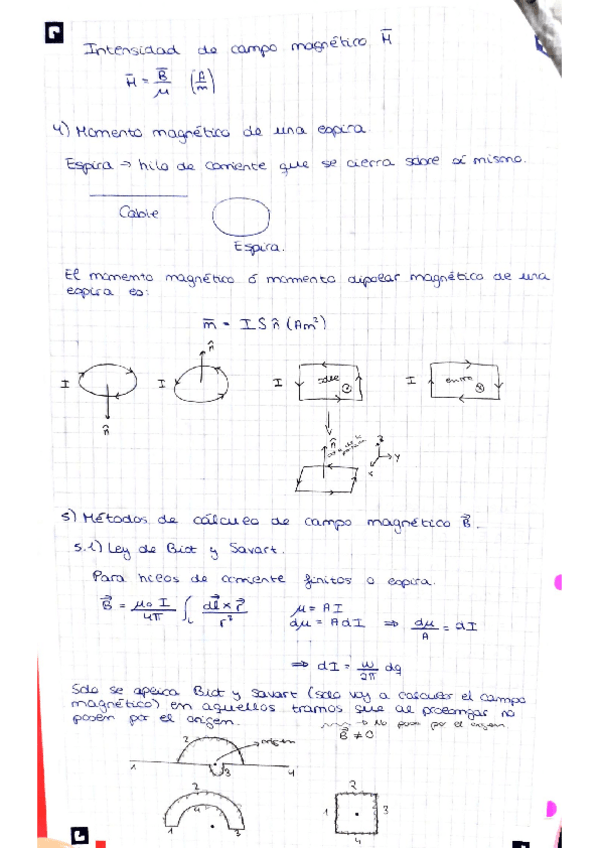 Intensidad de campo magnético H̄
H̄ = B̄/μ (A/m)
4) Momento magnético de una espira.
Espira → hilo de corriente que se cierra sobre sí mismo.
Cable
Espira.
El momento magnético ó momento dipolar magnético de una
espira es:
m̄ = I S n̂ (Am²)
n̂
I I I sale I entra
n̂
n̂
z
Y
x
5) Métodos de cálculo de campo magnético B⃗.
5.1) Ley de Biot y Savart.
Para hilos de corriente finitos o espira.
B⃗ = μ₀ I/4π ∫L dl⃗ × r⃗/r² μ = A I
dμ = A dI ⇒ dμ/A = dI
⇒ dI = ω/2π dq
Solo se aplica Biot y Savart (solo voy a calcular el campo
magnético) en aquellos tramos que al prolongar no
pasen por el origen. → No pasan por el origen
B⃗ ≠ 0
2 origen
1 3 4
2 2
4 1 3
1 3 4